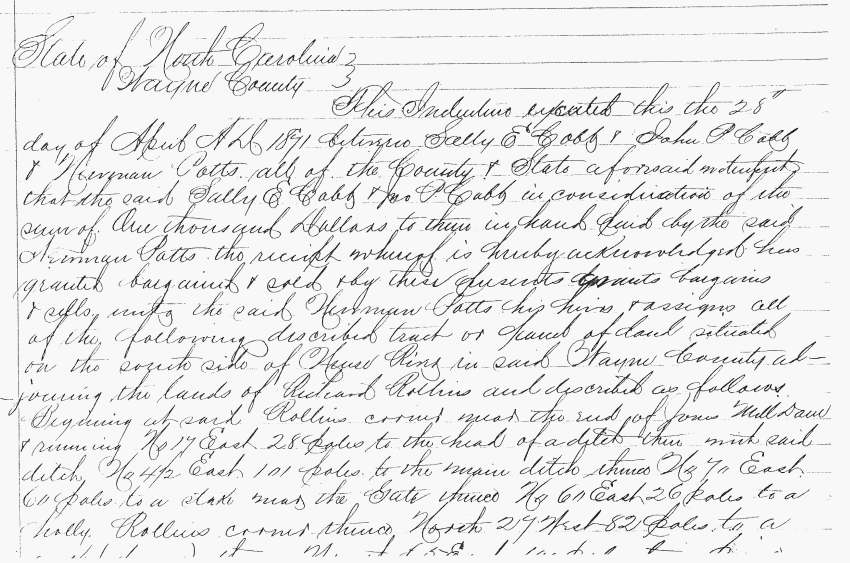 State of North Carolina }
Wayne County }
This Indenture executed this the 28"
day of April A D 1891 between Sally E Cobb & John P Cobb
& Newman Potts all of the County & State aforesaid witnesseth
that the said Sally E Cobb & Jno P Cobb in consideration of the
sum of One thousand Dollars to them in hand paid by the said
Newman Potts the receipt whereof is hereby acknowledged has
granted bargained & sold & by these presents grants bargains
& sells unto the said Newman Potts his heirs & assigns all
of the following described tract or parcel of land situated
on the south side of Neuse River in said Wayne County ad-
joining the lands of Richard Rollins and described as follows.
Begining at said Rollins corner near the End of Jones Mill Dam
& running No 17 East 28 poles to the head of a ditch then with said
ditch No 42 East 101 poles to the main ditch thence No 70 East
60 poles to a stake near the Gate thence No 60 East 26 poles to a
holly Rollins corner thence North 27 West 82 poles to a